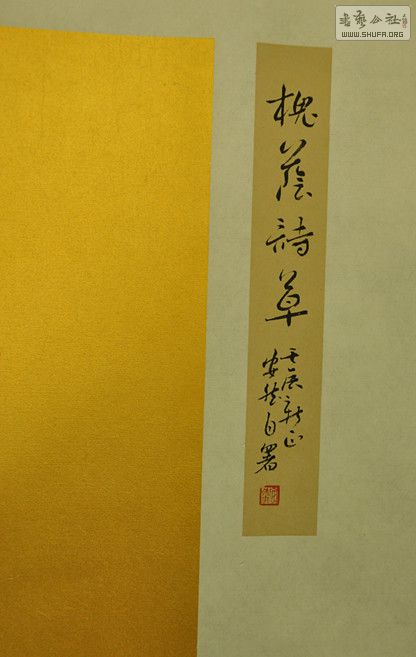 槐蔭詩草
壬辰新正
安然自署
書藝公社
WWW.SHUFA.ORG